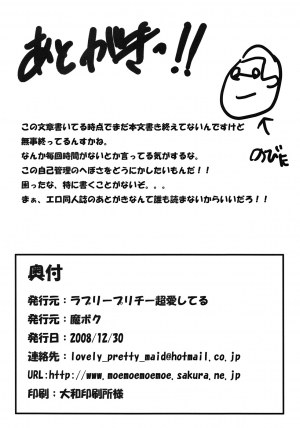 あとがきっ!!
のびた
この文章書いてる時点でまだ本文書き終えてないんですけど
無事終ってるんすかね。
なんか毎回時間がないとか言ってる気がするな。
この自己管理のへぼさをどうにかしたいもんだ!!
困ったな、特に書くことがないぞ．．．
まぁ、エロ同人誌のあとがきなんて誰も読まないからいいだろ!!
奥付
発行元：ラブリープリチー超愛してる
発行元：魔ボク
発行日：2008/12/30
連絡先：lovely_pretty_maid@hotmail.co.jp
URL:http://www.moemoemoemoe.sakura.ne.jp
印刷：大和印刷所様